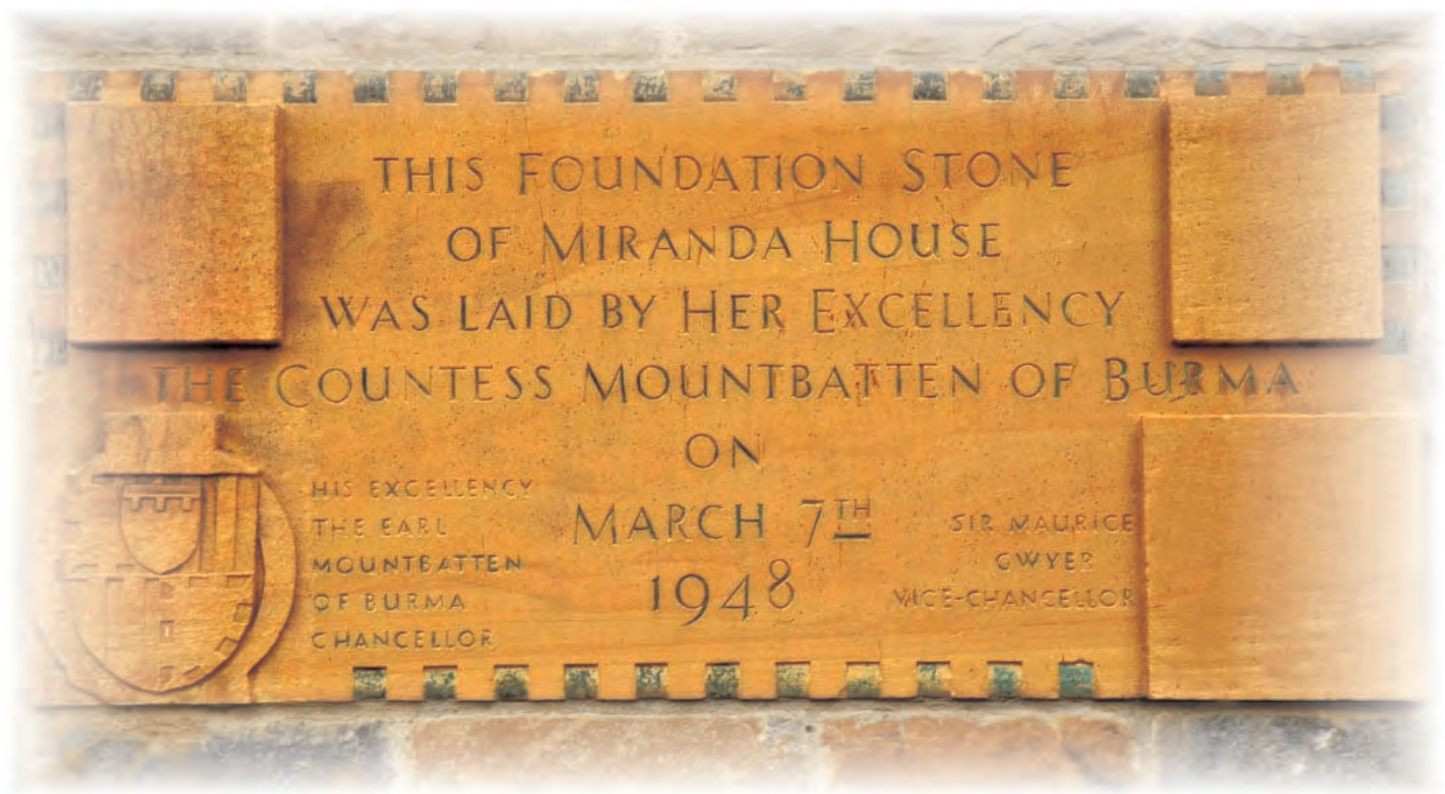 THIS FOUNDATION STONE
OF MIRANDA HOUSE
WAS LAID BY HER EXCELLENCY
THE COUNTESS MOUNTBATTEN OF BURMA
ON
MARCH 7TH
1948
HIS EXCELLENCY
THE EARL
MOUNTBATTEN
OF BURMA
CHANCELLOR
SIR MAURICE
GWYER
VICE-CHANCELLOR